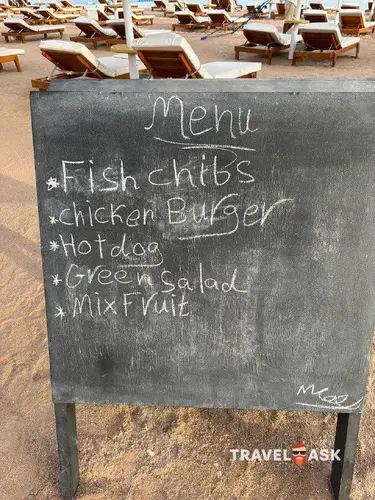 Menu
* Fish chibs
* chicken Burger
* Hot dog
* Green salad
* Mix Fruit
TRAVEL ASK